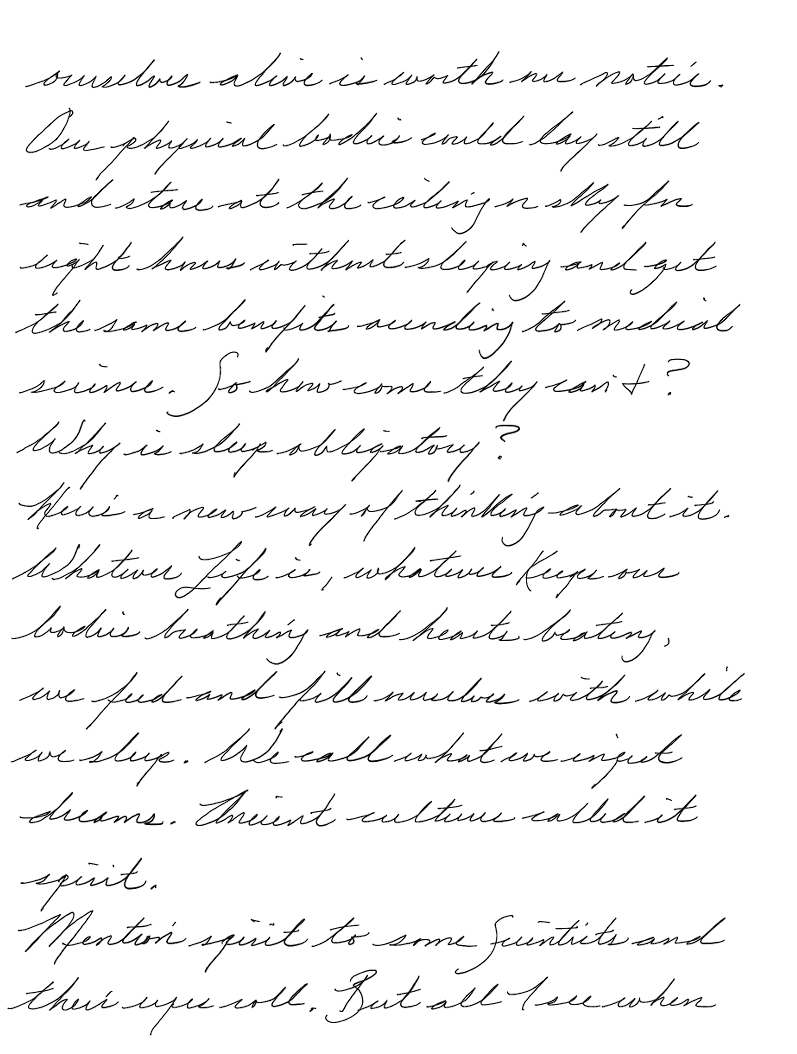 ourselves alive is worth our notice.
Our physical bodies could lay still
and stare at the ceiling or sky for
eight hours without sleeping and get
the same benefits according to medical
science. So how come they can't?
Why is sleep obligatory?
Here's a new way of thinking about it.
Whatever Life is, whatever Keeps our
bodies breathing and hearts beating,
we feed and fill ourselves with while
we sleep. We call what we ingest
dreams. Ancient cultures called it
spirit.
Mention spirit to some Scientists and
their eyes roll. But all I see when